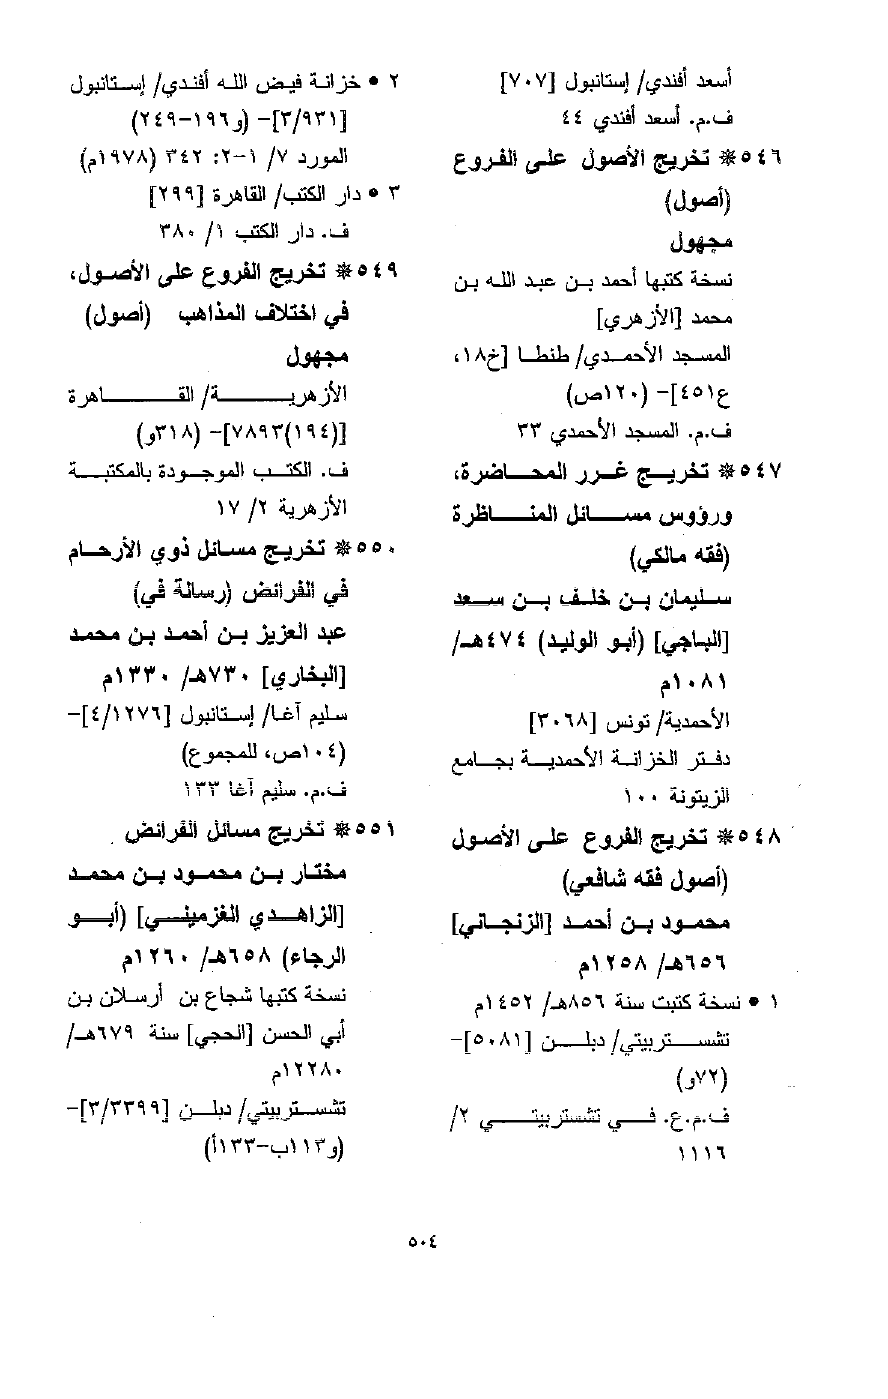 أسعد أفندي/ إستانبول [٧٠٧]
ف.م. أسعد أفندي ٤٤
٥٤٦* تخريج الأصول على الفروع
(أصول)
مجهول
نسخة كتبها أحمد بن عبد الله بن
محمد [الأزهري]
المسجد الأحمدي/ طنطا [خ١٨،
ع٤٥١]- (١٢٠ص)
ف.م. المسجد الأحمدي ٣٣
٥٤٧* تخريج غرر المحاضرة،
ورؤوس مسائل المناظرة
(فقه مالكي)
سليمان بن خلف بن سعد
[الباجي] (أبو الوليد) ٤٧٤هـ/
١٠٨١م
الأحمدية/ تونس [٣٠٦٨]
دفتر الخزانة الأحمدية بجامع
الزيتونة ١٠٠
٥٤٨* تخريج الفروع على الأصول
(أصول فقه شافعي)
محمود بن أحمد [الزنجاني]
٦٥٦هـ/ ١٢٥٨م
١ • نسخة كتبت سنة ٨٥٦هـ/ ١٤٥٢م
تشستربيتي/ دبلن [٥٠٨١]-
(٧٢و)
ف.م.ع. في تشستربيتي ٢/
١١١٦
٢ • خزانة فيض الله أفندي/ إستانبول
[٣/٩٣١]- (و١٩٦-٢٤٩)
المورد ٧/ ١-٢: ٣٤٢ (١٩٧٨م)
٣ • دار الكتب/ القاهرة [٢٩٩]
ف. دار الكتب ١/ ٣٨٠
٥٤٩* تخريج الفروع على الأصول،
في اختلاف المذاهب (أصول)
مجهول
الأزهرية/ القاهرة
[(١٩٤)٧٨٩٣]- (٣١٨و)
ف. الكتب الموجودة بالمكتبة
الأزهرية ٢/ ١٧
٥٥٠* تخريج مسائل ذوي الأرحام
في الفرائض (رسالة في)
عبد العزيز بن أحمد بن محمد
[البخاري] ٧٣٠هـ/ ١٣٣٠م
سليم آغا/ إستانبول [٤/١٢٧٦]-
(١٠٤ص، للمجموع)
ف.م. سليم آغا ١٣٣
٥٥١* تخريج مسائل الفرائض
مختار بن محمود بن محمد
[الزاهدي الغزميني] (أبو
الرجاء) ٦٥٨هـ/ ١٢٦٠م
نسخة كتبها شجاع بن أرسلان بن
أبي الحسن [الحجي] سنة ٦٧٩هـ/
١٢٢٨٠م
تشستربيتي/ دبلن [٣/٣٣٩٩]-
(و١١٣ب-١٣٣أ)
٥٠٤